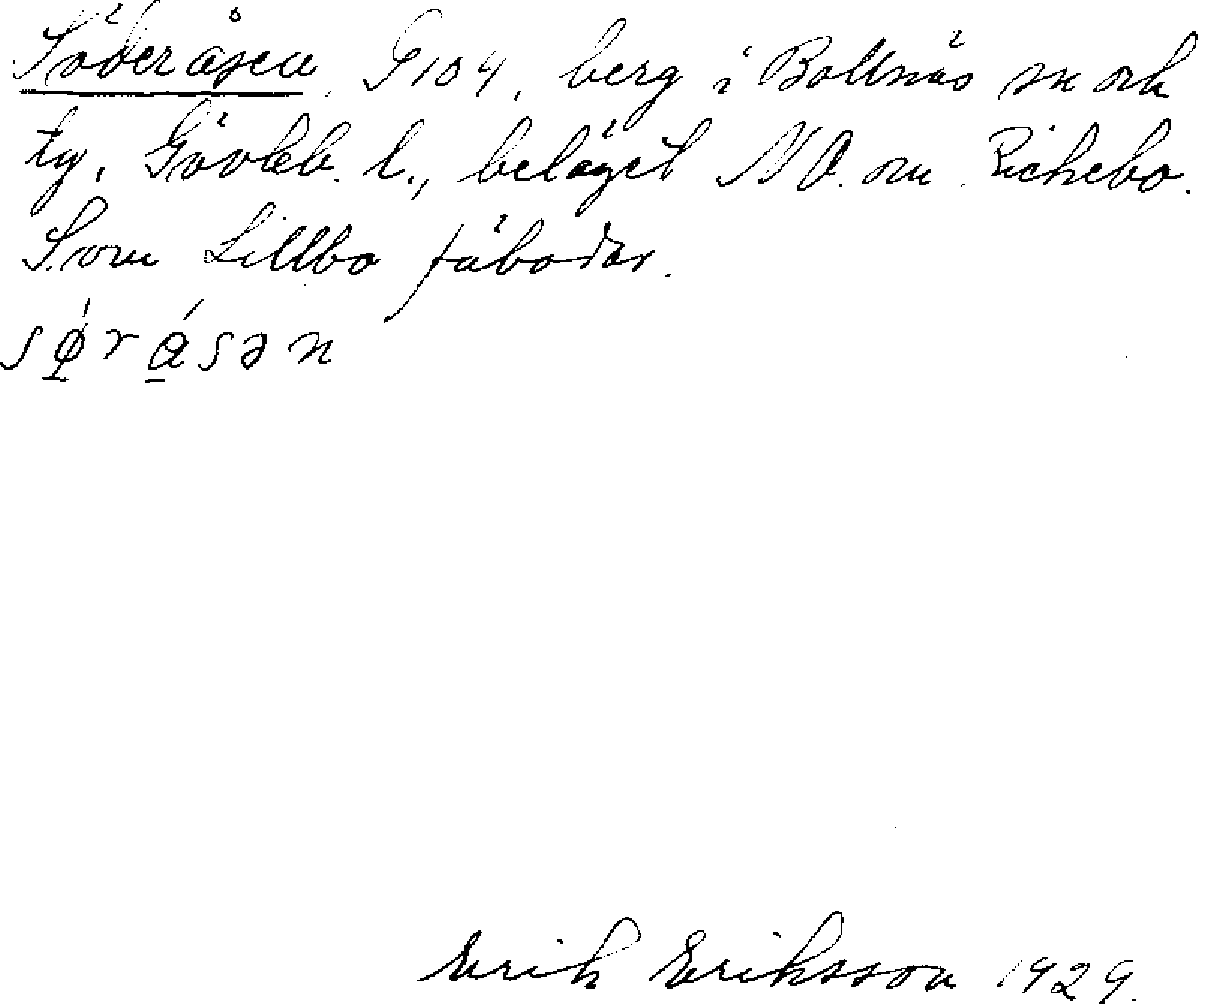 Söderåsen, G104, berg i Bollnäs sn och
tg, Gävleb. l., beläget NO. om Richebo.
S. om Lillbo fäbodar.
sǿrása n
Erik Eriksson 1929.